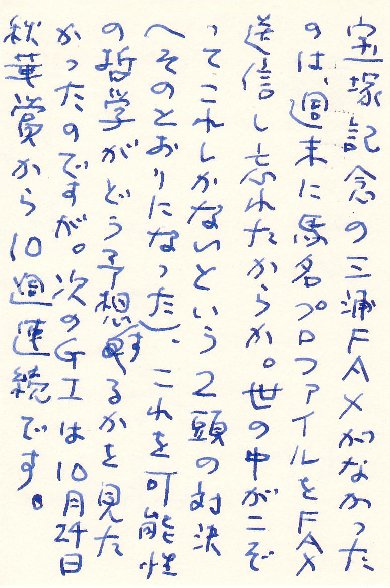 宝塚記念の三浦FAXがなかった
のは、週末に馬名プロファイルをFAX
送信し忘れたからか。世の中がこぞ
ってこれしかないという2頭の対決
(そのとおりになった)、これを可能性
の哲学がどう予想するかを見た
かったのですが。次のGIは10月24日
秋華賞から10週連続です。